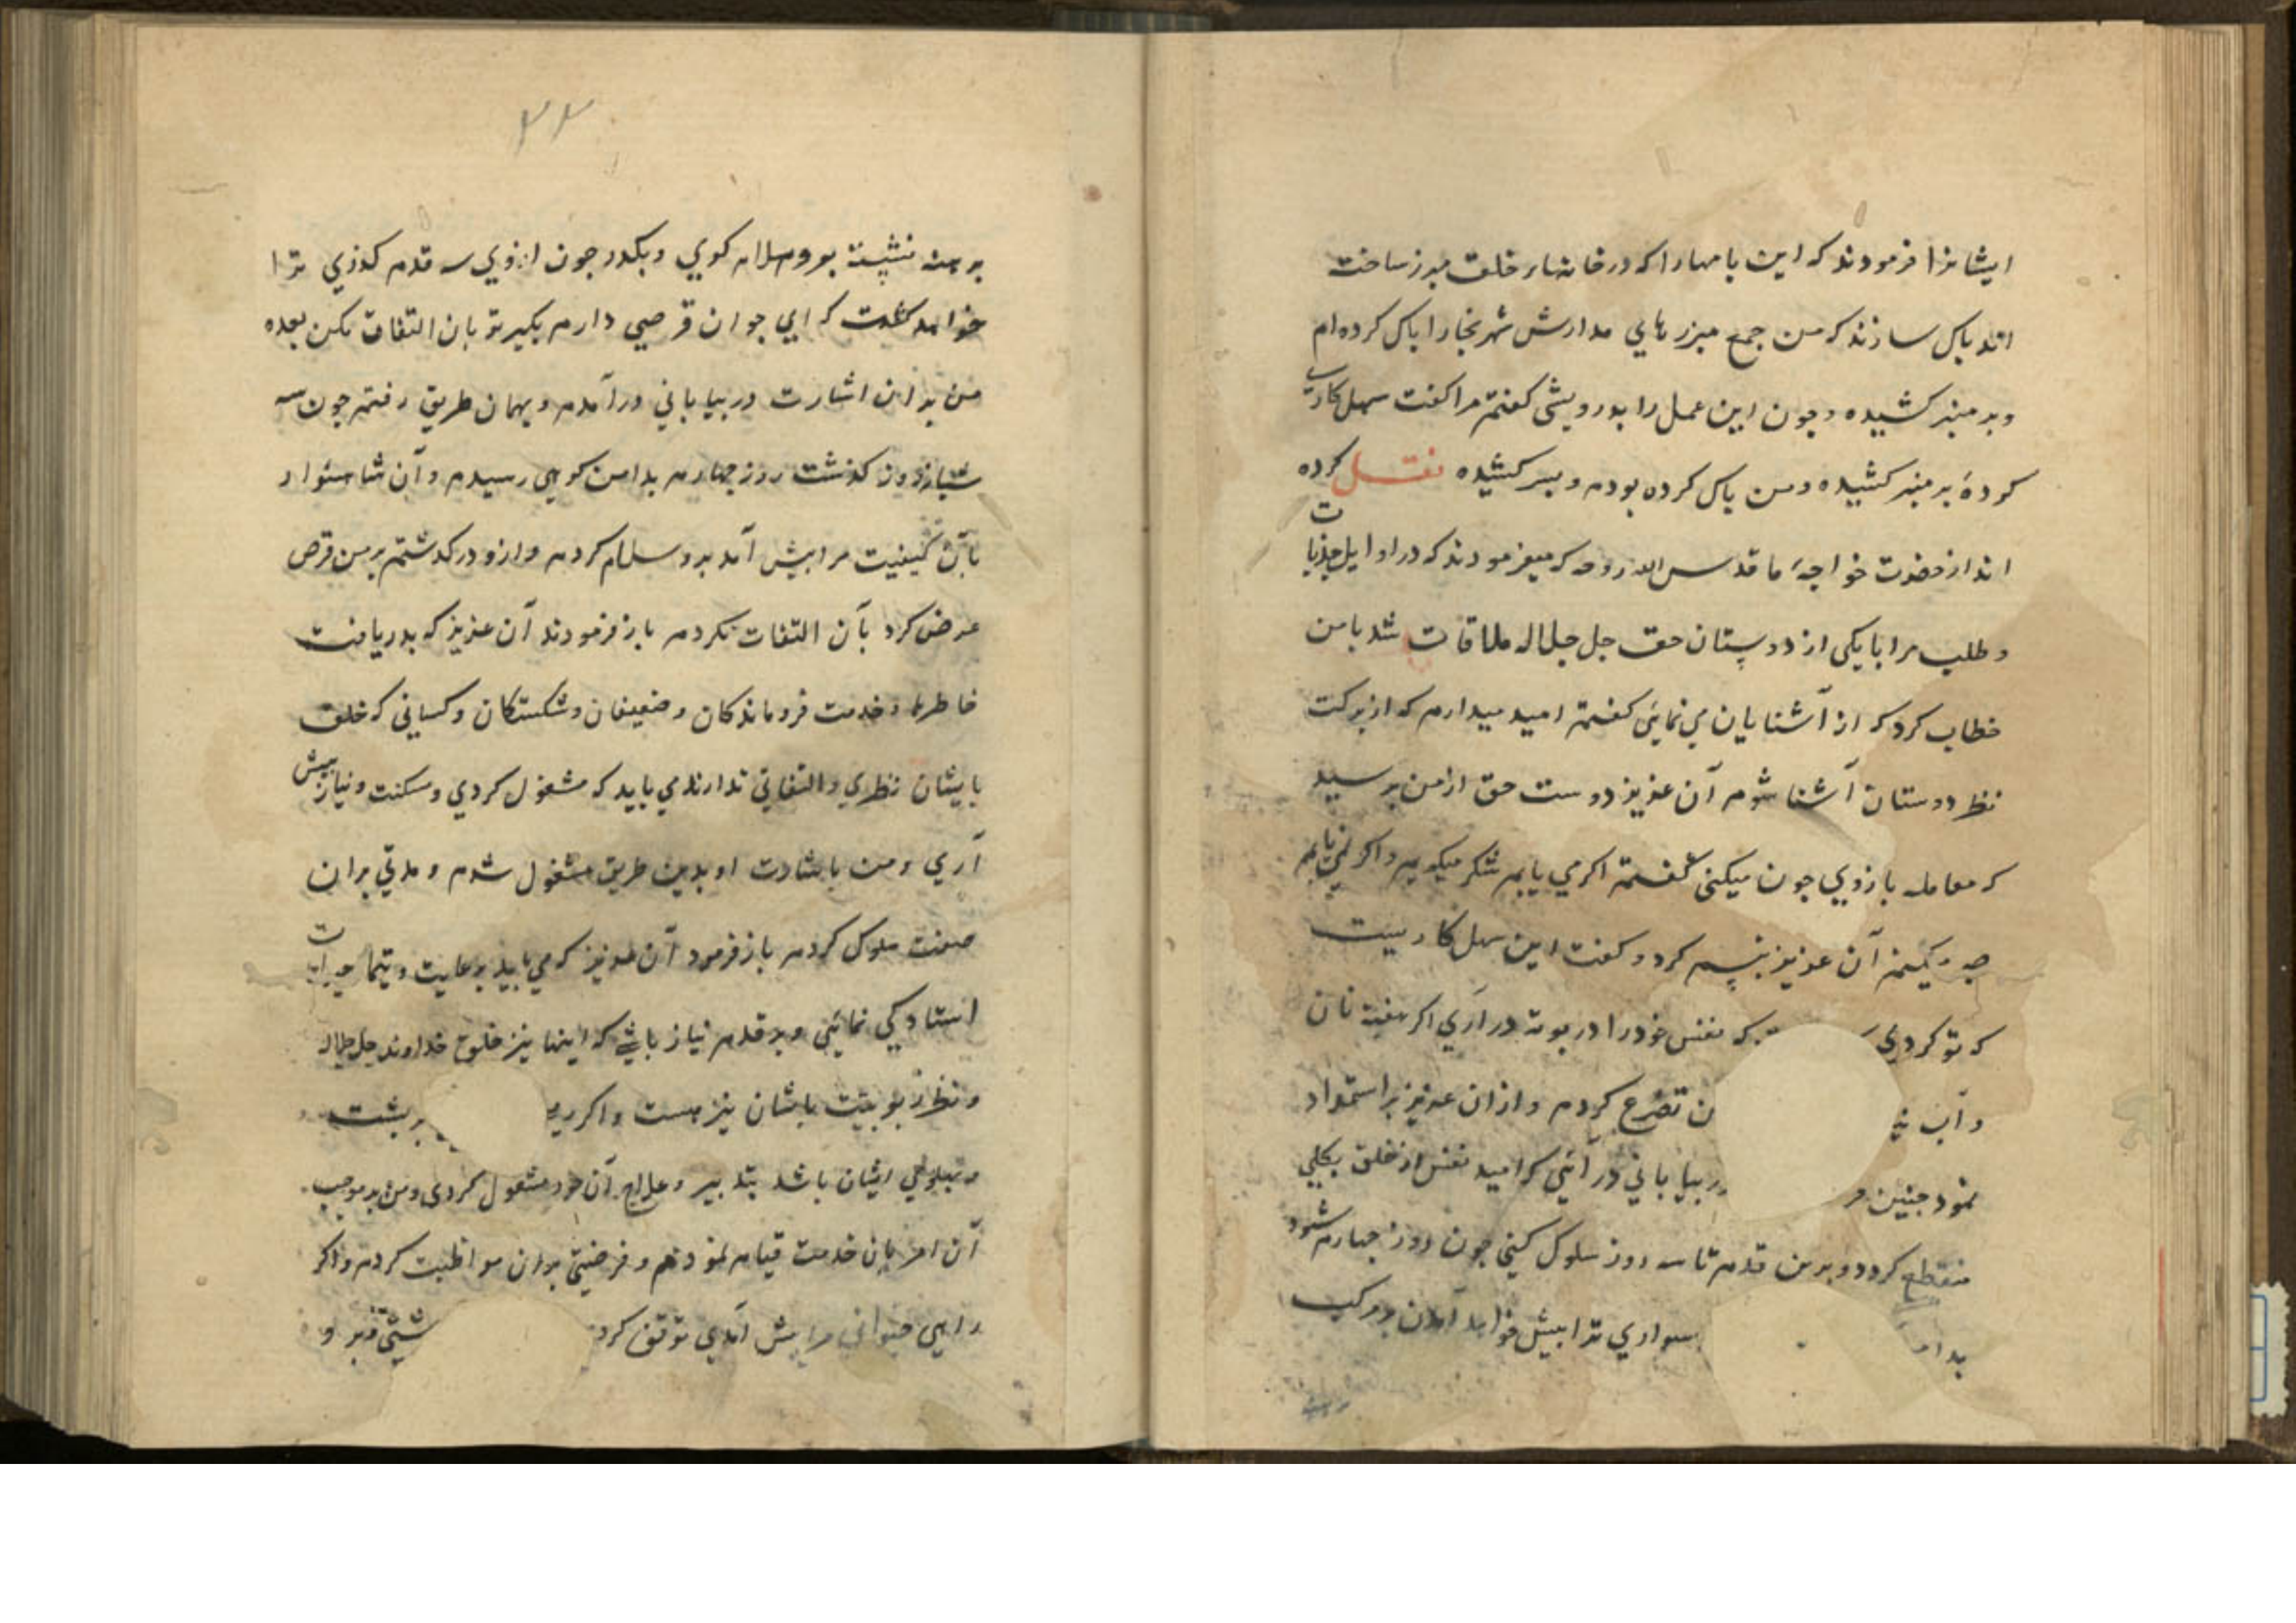 ایشانرا فرمودند که این بامهارا که در خانهاء خلق مبرز ساخت
اند پاک سازند که من جمع مبرزهاي مدارش شهر بخارا پاک کرده ام
وبر منبر کشیده و چون این عمل را بدرویشی کفتم مرا کفت سهل کاري
کردۀ بر منبر کشیده و من پاک کرده بودم وبسر کشیده نقل کرده
اند از حضرت خواجۀ ما قدس الله روحه که میفرمودند که در اوایل جذبات
وطلب مرا با یکی از دوستان حق جل جلاله ملاقات شد با من
خطاب کرد که از آشنایان می نمایی کفتم امید میدارم که از برکت
نظر دوستان آشنا شوم آن عزیز دوست حق از من پرسید
که معامله با روزي چون میکنی کفتم اکر می یابم شکر میکویم واکر نمی یابم
صبر میکنم آن عزیز تبسم کرد و کفت این سهل کاریست
که تو کردي که نفس خودرا در بوته در آري اکر هفته نان
وآب ن تضرع کردم و از ان عزیز استمداد
نمود چنین ر بیابانی در آئی که امید نفس از خلق بکلی
منقطع کردد و برین قدم تا سه روز سلوک کنی چون روز چهارم شود
بدا سواري ترا پیش خواهد آمدن بر مرکب
۴۴
برهنه نشسته برو سلام کوي وبکذر چون ازوي سه قدم کذري ترا
خواهد کفت که اي جوان قرصی دارم بکیر تو بان التفات مکن بعده
من بدان اشارت در بیابانی درآمدم و بهمان طریق رفتم چون سه
شبانروز کذشت روز چهارم بدامن کوهی رسیدم و آن شاهسوار
بآن کیفیت مرا پیش آمد برو سلام کردم و ازو درکذشتم بر من قرص
عرض کرد بآن التفات نکردم باز فرمودند آن عزیز که بدریافت
خاطرها و خدمت فروماندکان و ضعیفان و شکستکان و کسانی که خلق
بایشان نظري والتفاتی ندارند می باید که مشغول کردي و مسکنت و نیاز پیش
آري و من باشارت او بدین طریق مشغول شدم و مدتی بران
صفت سلوک کردم باز فرمود آن عزیز که می باید برعایت و تیمار حیوانات
استادکی نمایی و بر قدم نیاز باشی که اینها نیز خلق خداوند جل جلاله
ونظر ربوبیت باایشان نیز هست واکر ر بر پشت
و پهلوي ایشان باشد بتدبیر و علاج آن خود مشغول کردي ومن بر موجب
آن امر بآن خدمت قیام نمودم و فرضی بران مواظبت کردم واکر
راهی حیوانی مرا پیش آمدي توقف کرد و